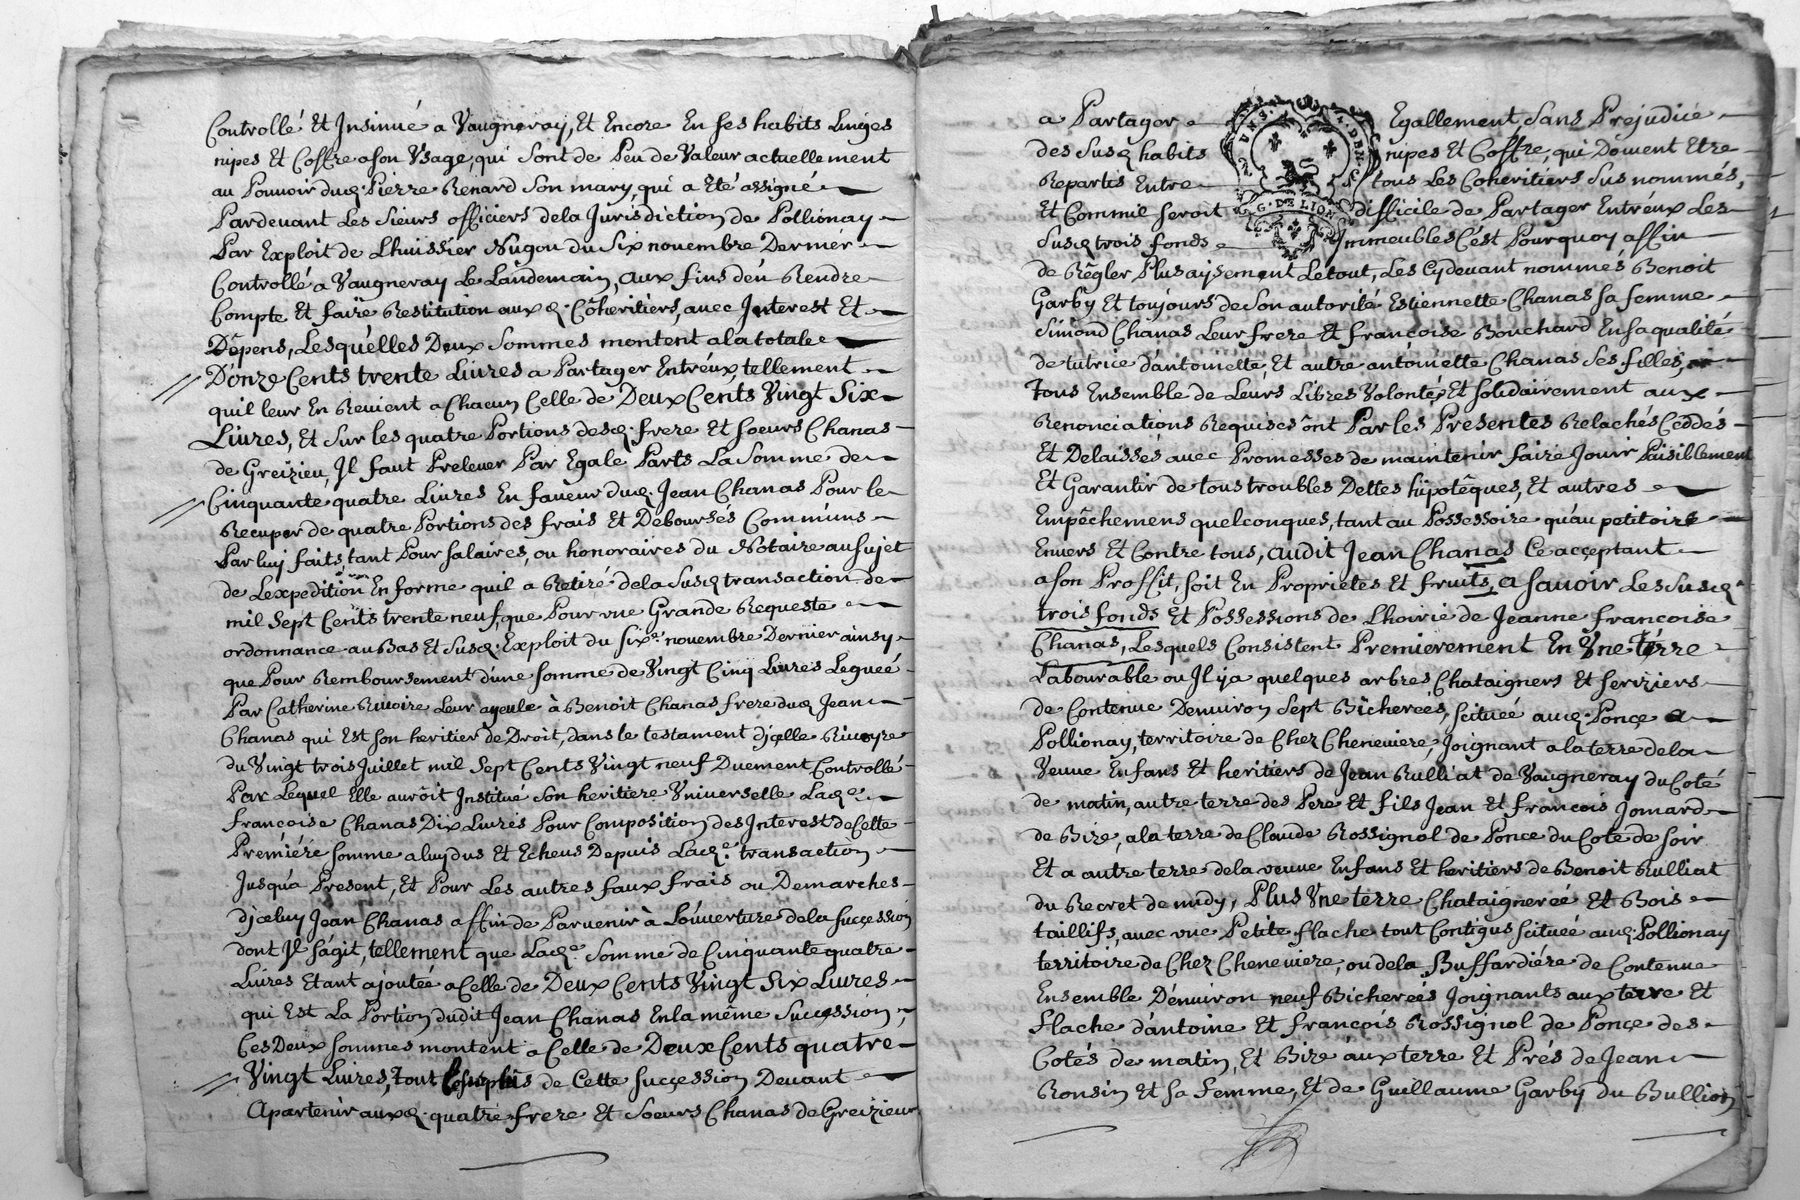 Controllé Et Insinué a Vaugneray, Et Encore En ses habits Linges
nipes Et Coffre a son Usage, qui sont de Peu de Valeur actuellement
au Pouvoir dud. Pierre Renard son mary, qui a Eté assigné
Pardevant Les Sieurs officiers de la Jurisdiction de Pollionay
Par Exploit de Lhuissier Nugou du Six novembre Dernier
Controllé a Vaugneray Le Landemain, aux fins den Rendre
Compte Et faire Restitution aux d. Cöheritiers, avec Interest Et
Dépens, Lesquelles Deux Sommes montent a la totale
D'onze Cents trente Livres a Partager Entréux, tellement
quil leur En Revient a Chacun Celle de Deux Cents Vingt Six
Livres, Et sur les quatre Portions desd. frere Et soeurs Chanas
de Greizieu, Il faut Prelever Par Egale Parts La Somme de
Cinquante quatre Livres En faveur dud. Jean Chanas Pour le
Recuper de quatre Portions des frais Et Déboursés Communs
Par luy faits, tant Pour salaires, ou honoraires du Notaire au sujet
de Lexpedition En forme quil a Retiré de la Susd. transaction de
mil Sept Cents trente neuf, que Pour une Grande Requeste
ordonnance au Bas Et Susd. Exploit du Six.e novembre Dernier ainsy
que Pour Remboursement d'une somme de Vingt Cinq Livres Leguée
Par Catherine Rivoire Leur ayeule à Benoit Chanas frere dud. Jean
Chanas qui Est son heritier de Droit, dans le testament d'jcelle Rivoyre
du Vingt trois Juillet mil Sept Cents Vingt neuf Duement Controllé
Par Lequel Elle auröit Institué son heritiere Universelle Lad.e
francoise Chanas Dix Livres Pour Composition des Interest de Cette
Premiére somme a luy dus Et Echeus Depuis Lad.e transaction
Jusqu'a Present, Et Pour Les autres faux frais ou Demarches
d'jceluy Jean Chanas affin de Parvenir à Louverture de la succession
dont Il s'agit, tellement que Lad.e Somme de Cinquante quatre
Livres Etant ajoutée a Celle de Deux Cents Vingt Six Livres
qui Est La Portion dudit Jean Chanas En la même Succession,
Ces Deux sommes montent a Celle de Deux Cents quatre
Vingt Livres, tout de Cette succession Devant
Apartenir aux d. quatre frere Et Soeurs Chanas de Greizieu
a Partager Egallement, Sans Prejudice
des Susd. habits nipes Et Coffre, qui Doivent Etre
Repartis Entre tous Les Coheritiers Sus nommés,
Et Comm'il seroit difficile de Partager Entréux Les
Susd. trois fonds Immeubles C'est Pourquoy affin
G. DE LION
de Régler Plus aysement Le tout, Les Cydevant nommés Benoit
Garby Et toujours de Son autorité Estiennette Chanas sa femme
Simond Chanas Leur frere Et françoise Bouchard En sa qualité
de tutrice d'antoinette Et autre antoinette Chanas Ses filles,
Tous Ensemble de Leurs Libres Volontés Et solidairement aux
Renonciations Requises önt Par les Presentes Relachés Ceddés
Et Delaissés avec Promesses de maintenir faire Jouir Paisiblement
Et Garantir de tous troubles Dettes hipotêques, Et autres
Empêchemens quelconques, tant au Possessoire qu'au petitoire
Envers Et Contre tous, audit Jean Chanas Ce acceptant
a son Proffit, soit En Proprietes Et fruits, a savoir Les Susd.
trois fonds Et Possessions de Lhoirie de Jeanne francoise
Chanas, Lesquels Consistent Premierement En Une Terre
Labourable ou Il ya quelques arbres Chataigners Et seriziers
de Contenue Denviron Sept Bicherees, scituée aud. Ponce a
Pollionay, territoire de Chez Cheneviere, Joignant a la terre de la
Veuve Enfans Et heritiers de Jean Rulliat de Vaugneray du Coté
de matin, autre terre des Pere Et fils Jean Et francois Jomard
de Bize, a la terre de Claude Rossignol de Ponce du Coté de soir
Et a autre terre de la veuve Enfans Et heritiers de Benoit Rulliat
du Recret de midy, Plus Une terre Chataigneréé Et Bois
taillifs, avec une Petite flache tout Contigus scituée aud. Pollionay
territoire de Chez Cheneviere, ou de la Buffardiére de Contenue
Ensemble D'environ neuf Bicherées Joignants aux terre Et
flache d'antoine Et françois Rossignol de Ponce des
Cotés de matin, Et Bize aux terre Et Prés de Jean
Ronsin Et sa femme, Et de Guillaume Garby du Bullion